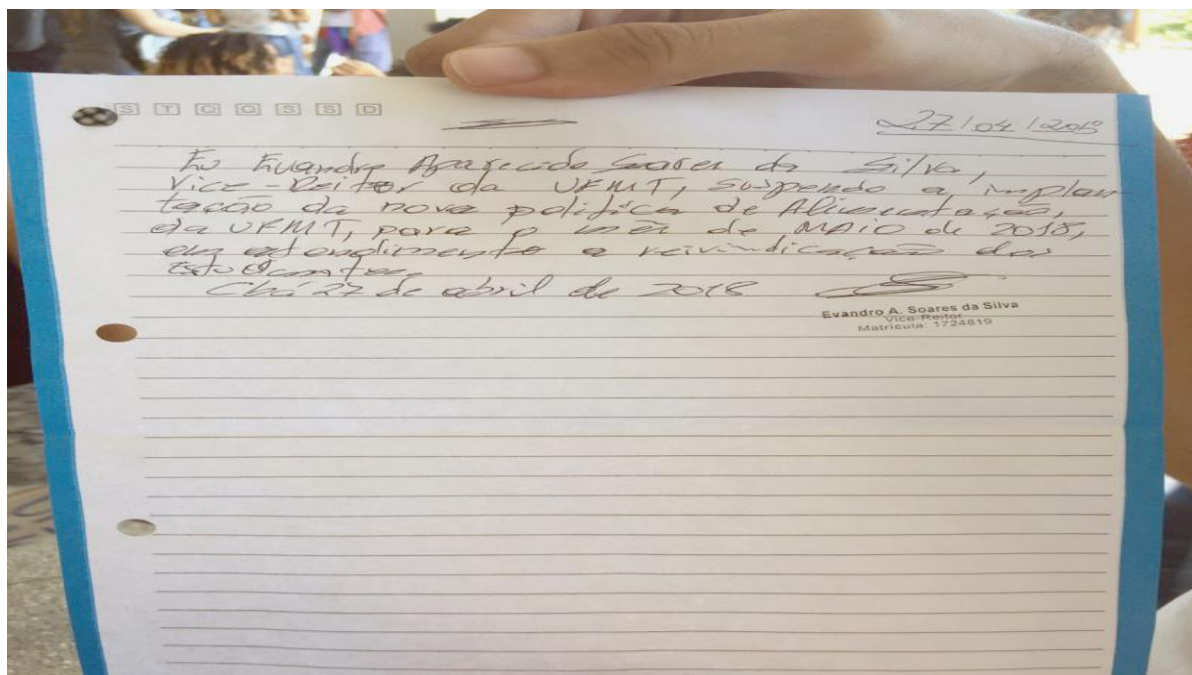 S T Q Q S S D
27/04/2018
Eu Evandro Aparecido Soares da Silva,
Vice-Reitor da UFMT, suspendo a implan
tação da nova política de Alimentação,
da UFMT, para o mês de MAIO de 2018,
em atendimento a reivindicação dos
Estudantes.
Cbá 27 de abril de 2018
Evandro A. Soares da Silva
Vice-Reitor
Matrícula: 1724819